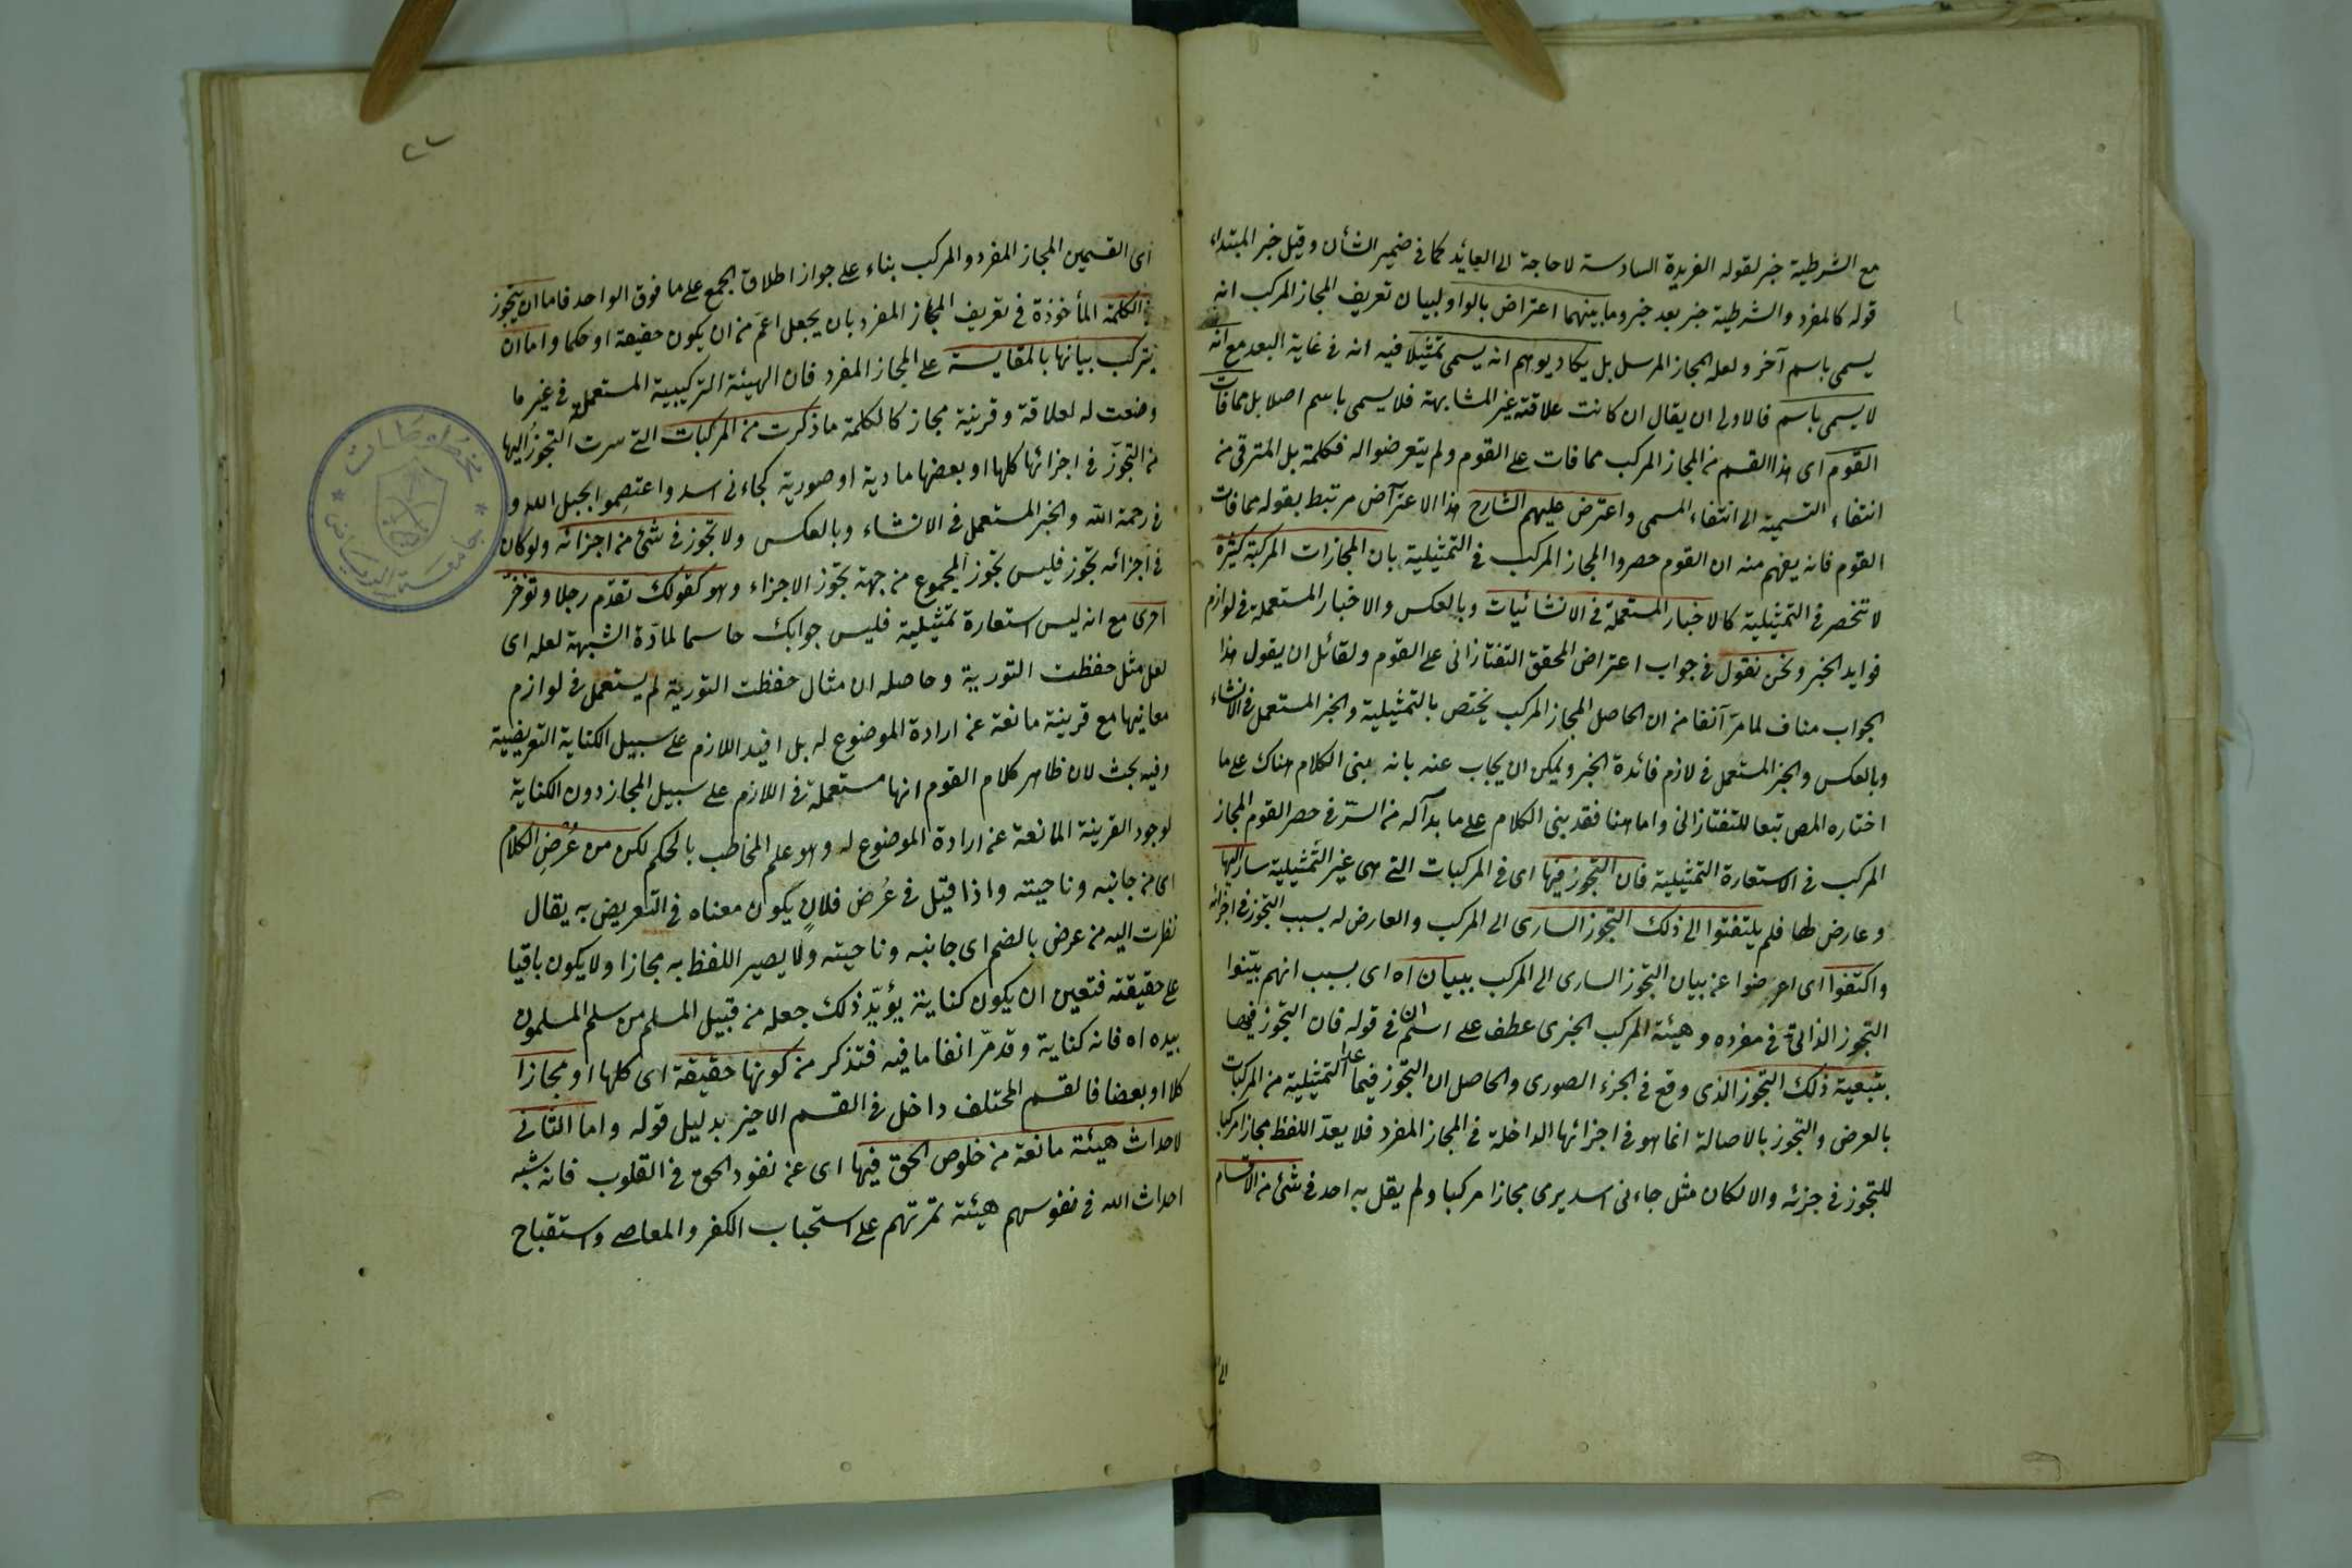 مع الشرطية خبر لقوله الفريدة السادسة لا حاجة الى العائد كما في ضمير الشأن وقيل خبر المبتداء
قوله كالمفرد والشرطية خبر بعد خبر وما بينهما اعتراض بالواو لبيان تعريف المجاز المركب انه
يسمى باسم آخر ولعله المجاز المرسل بل يكاد يوهم انه يسمى تمثيلا فيه انه في غاية البعد مع انه
لا يسمى باسم فالاولى ان يقال ان كانت علاقته غير المشابهة فلا يسمى باسم اصلا بل مما فات
القوم اى هذا القسم من المجاز المركب مما فات على القوم ولم يتعرضوا له فكلمة بل للترقى من
انتفاء التسمية الى انتفاء المسمى واعترض عليهم الشارح هذا الاعتراض مرتبط بقوله مما فات
القوم فانه يفهم منه ان القوم حصروا المجاز المركب في التمثيلية بان المجازات المركبة كثيرة
لا تنحصر في التمثيلية كالاخبار المستعملة في الانشائيات وبالعكس والاخبار المستعملة في لوازم
فوايد الخبر ونحن نقول في جواب اعتراض المحقق التفتازانى على القوم ولقائل ان يقول هذا
الجواب مناف لما مر آنفا من ان الحاصل المجاز المركب يختص بالتمثيلية والخبر المستعمل في الانشاء
وبالعكس والخبر المستعمل في لازم فائدة الخبر ويمكن ان يجاب عنه بانه بنى الكلام هناك على ما
اختاره المص تبعا للتفتازانى واما هنا فقد بنى الكلام على ما بدآ له من السر في حصر القوم المجاز
المركب في الاستعارة التمثيلية فان التجوز فيها اى في المركبات التى هى غير التمثيلية سار اليها
وعارض لها فلم يلتفتوا الى ذلك التجوز السارى الى المركب والعارض له بسبب التجوز في اجزائه
واكتفوا اى اعرضوا عن بيان التجوز السارى الى المركب ببيان اه اى بسبب انهم بينوا
التجوز الذاتى في مفرده وهيئة المركب الخبرى عطف على اسم ان في قوله فان التجوز فيها
بتبعية ذلك التجوز الذى وقع في الجزء الصورى والحاصل ان التجوز فيما عدا التمثيلية من المركبات
بالعرض والتجوز بالاصالة انما هو في اجزائها الداخلة في المجاز المفرد فلا يعد اللفظ مجازا مركبا
للتجوز في جزئه والا لكان مثل جاءنى اسد يرمى مجازا مركبا ولم يقل به احد في شئ من الاقسام
اى القسمين المجاز المفرد والمركب بناء على جواز اطلاق الجمع على ما فوق الواحد فاما ان يتجوز
في الكلمة المأخوذة في تعريف المجاز المفرد بان يجعل اعم من ان يكون حقيقة او حكما واما ان
يترك بيانها بالمقايسة على المجاز المفرد فان الهيئة التركيبية المستعملة في غير ما
وضعت له لعلاقة وقرينة مجاز كالكلمة ما ذكرت من المركبات التى سرت التجوز اليها
من التجوز في اجزائها كلها او بعضها مادية او صورية كجاءنى اسد واعتصموا بحبل الله و
في رحمة الله والخبر المستعمل في الانشاء وبالعكس ولا تجوز في شئ من اجزائه ولو كان
في اجزائه تجوز فليس تجوز المجموع من جهة تجوز الاجزاء وهو كقولك تقدم رجلا وتؤخر
اخرى مع انه ليس استعارة تمثيلية فليس جوابك حاسما لمادة الشبهة لعله اى
لعل مثل حفظت التورية وحاصله ان مثال حفظت التورية لم يستعمل في لوازم
معانيها مع قرينة مانعة عن ارادة الموضوع له بل افيد اللازم على سبيل الكناية التعريضية
وفيه بحث لان ظاهر كلام القوم انها مستعملة في اللازم على سبيل المجاز دون الكناية
لوجود القرينة المانعة عن ارادة الموضوع له وهو علم المخاطب بالحكم لكن من عُرْضِ الكلام
اى من جانبه وناحيته واذا قيل في عُرض فلانٍ يكون معناه في التعريض به يقال
نظرت اليه من عرض بالضم اى جانبه وناحيته ولا يصير اللفظ به مجازا ولا يكون باقيا
على حقيقته فتعين ان يكون كناية يؤيّد ذلك جعله من قبيل المسلم من سلم المسلمون
بيده اه فانه كناية وقد مر انفا ما فيه فتذكر من كونها حقيقة اى كلها او مجازا
كلا او بعضا فالقسم المختلف داخل في القسم الاخير بدليل قوله واما الثانى
لاحداث هيئة مانعة من خلوص الحق فيها اى عن نفوذ الحق في القلوب فانه شبه
احداث الله في نفوسهم هيئة تمرنهم على استحباب الكفر والمعاصى واستقباح